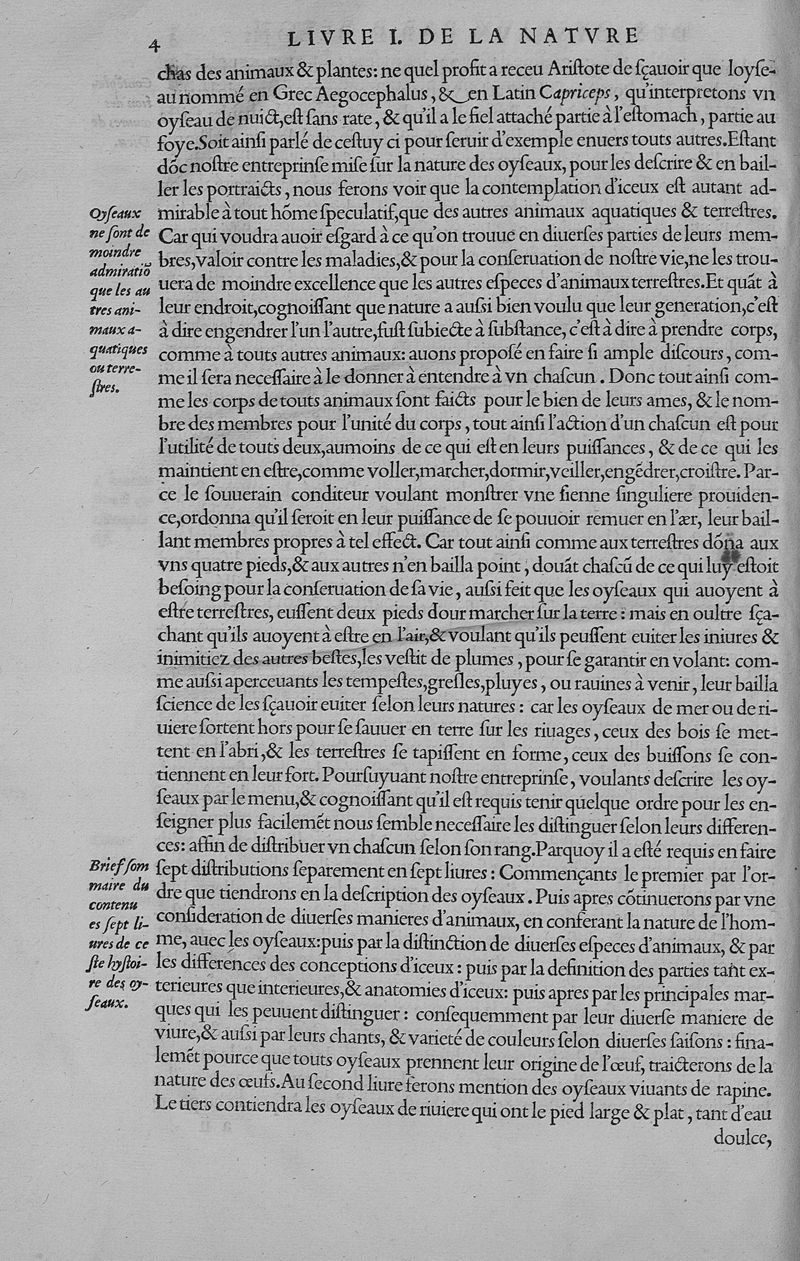 4
LIVRE I. DE LA NATVRE
chas des animaux & plantes: ne quel profit a receu Ariſtote de ſçauoir que loyſe-
au nommé en Grec Aegocephalus, & en Latin Capriceps, qu'interpretons vn
oyſeau de nuict, eſt ſans rate, & qu'il a le fiel attaché partie à l'eſtomach, partie au
foye. Soit ainſi parlé de ceſtuy ci pour ſeruir d'exemple enuers touts autres. Eſtant
dõc noſtre entreprinſe miſe ſur la nature des oyſeaux, pour les deſcrire & en bail-
ler les portraicts, nous ferons voir que la contemplation d'iceux eſt autant ad-
mirable à tout hõme ſpeculatif, que des autres animaux aquatiques & terreſtres.
Car qui voudra auoir eſgard à ce qu'on trouue en diuerſes parties de leurs mem-
bres, valoir contre les maladies, & pour la conſeruation de noſtre vie, ne les trou-
uera de moindre excellence que les autres eſpeces d'animaux terreſtres. Et quãt à
leur endroit, cognoiſſant que nature a auſsi bien voulu que leur generation, c'eſt
à dire engendrer l'un l'autre, fuſt ſubiecte à ſubſtance, c'eſt à dire à prendre corps,
comme à touts autres animaux: auons propoſé en faire ſi ample diſcours, com-
me il ſera neceſſaire à le donner à entendre à vn chaſcun. Donc tout ainſi com-
me les corps de touts animaux ſont faicts pour le bien de leurs ames, & le nom-
bre des membres pour l'unité du corps, tout ainſi l'action d'un chaſcun eſt pour
l'utilité de touts deux, aumoins de ce qui eſt en leurs puiſſances, & de ce qui les
maintient en eſtre, comme voller, marcher, dormir, veiller, engẽdrer, croiſtre. Par-
ce le ſouuerain conditeur voulant monſtrer vne ſienne ſinguliere prouiden-
ce, ordonna qu'il ſeroit en leur puiſſance de ſe pouuoir remuer en l'ær, leur bail-
lant membres propres à tel effect. Car tout ainſi comme aux terreſtres dõna aux
vns quatre pieds, & aux autres n'en bailla point, douãt chaſcũ de ce qui luy eſtoit
beſoing pour la conſeruation de ſa vie, auſsi feit que les oyſeaux qui auoyent à
eſtre terreſtres, euſſent deux pieds dour marcher ſur la terre: mais en oultre ſça-
chant qu'ils auoyent à eſtre en l'air, & voulant qu'ils peuſſent euiter les iniures &
inimitiez des autres beſtes, les veſtit de plumes, pour ſe garantir en volant: com-
me auſsi aperceuants les tempeſtes, greſles, pluyes, ou rauines à venir, leur bailla
ſcience de les ſçauoir euiter ſelon leurs natures: car les oyſeaux de mer ou de ri-
uiere ſortent hors pour ſe ſauuer en terre ſur les riuages, ceux des bois ſe met-
tent en l'abri, & les terreſtres ſe tapiſſent en forme, ceux des buiſſons ſe con-
tiennent en leur fort. Pourſuyuant noſtre entreprinſe, voulants deſcrire les oy-
ſeaux par le menu, & cognoiſſant qu'il eſt requis tenir quelque ordre pour les en-
ſeigner plus facilemẽt nous ſemble neceſſaire les diſtinguer ſelon leurs differen-
ces: affin de diſtribuer vn chaſcun ſelon ſon rang. Parquoy il a eſté requis en faire
ſept diſtributions ſeparement en ſept liures: Commençants le premier par l'or-
dre que tiendrons en la deſcription des oyſeaux. Puis apres cõtinuerons par vne
conſideration de diuerſes manieres d'animaux, en conferant la nature de l'hom-
me, auec les oyſeaux: puis par la diſtinction de diuerſes eſpeces d'animaux, & par
les differences des conceptions d'iceux: puis par la definition des parties tant ex-
terieures que interieures, & anatomies d'iceux: puis apres par les principales mar-
ques qui les peuuent diſtinguer: conſequemment par leur diuerſe maniere de
viure, & auſsi par leurs chants, & varieté de couleurs ſelon diuerſes ſaiſons: fina-
lemẽt pource que touts oyſeaux prennent leur origine de l'œuf, traicterons de la
nature des œufs. Au ſecond liure ferons mention des oyſeaux viuants de rapine.
Le tiers contiendra les oyſeaux de riuiere qui ont le pied large & plat, tant d'eau
doulce,
Oyſeaux
ne ſont de
moindre
admiratiõ
que les au
tres ani-
maux a-
quatiques
ou terre-
ſtres.
Brief ſom
maire du
contenu
es ſept li-
ures de ce
ſte hyſtoi-
re des oy-
ſeaux.